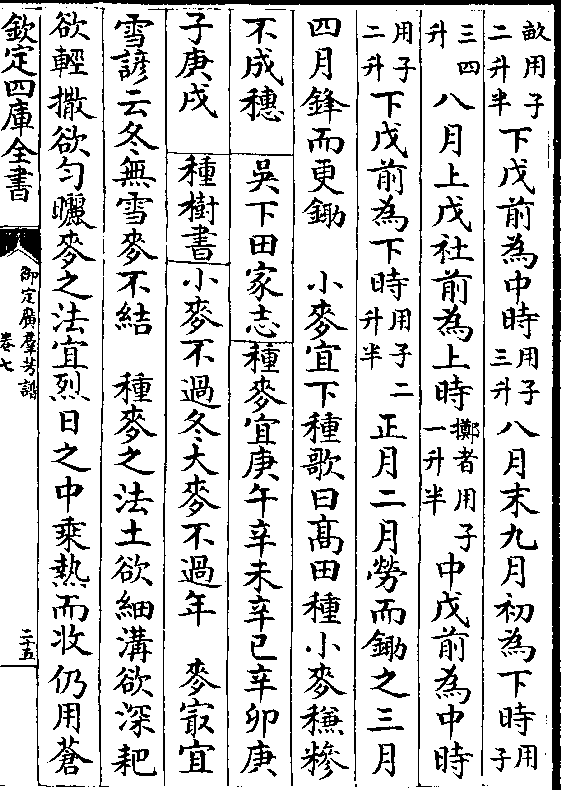 畝用子二升半下戊前為中時用子三升八月末九月初為下時用子
三四升八月上戊社前為上時擲者用子一升半中戊前為中時
用子二升下戊前為下時用子二升半正月二月勞而鋤之三月
四月鋒而更鋤　小麥宜下種歌曰髙田種小麥稴穇
不成穗　吳下田家志種麥宜庚午辛未辛巳辛卯庚
子庚戌　種樹書小麥不過冬大麥不過年　麥㝡宜
雪諺云冬無雪麥不結　種麥之法土欲細溝欲深耙
欲輕撒欲匀曬麥之法宜烈日之中乘熱而收仍用蒼
欽定四庫全書
御定廣羣芳譜
卷七
二十五